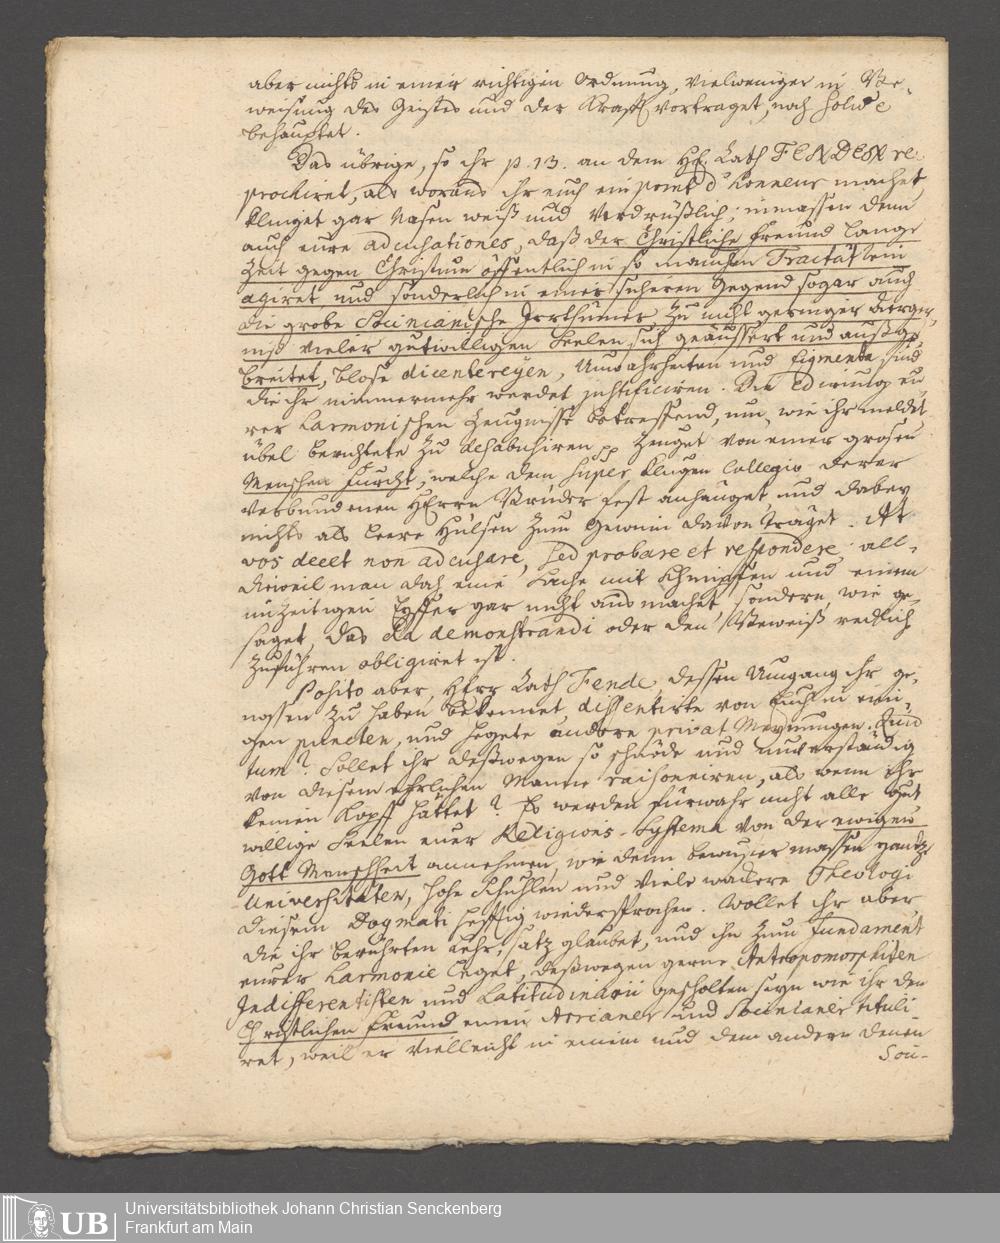 aber nichts in einer richtigen Ordnung, vielweniger in Be-
weisung des Geistes und der Krafft vortraget, noch solide
behauptet.
Das übrige, so ihr p. 13. an dem H. Rath FENDEN re-
prochiret, als woraus ihr euch ein point d'honneur machet,
klinget gar Nasen weiß und verdrüßlich; immassen denn
auch eure adcusationes, daß der Christliche Freund lange
Zeit gegen Christum öffentlich in so manchen Tractätlein
agiret und sonderlich in einer sicheren Gegend sogar auch
die grobe Socinianische Irrthümer zu nicht geringer Aerger-
niß vieler gutwilligen Seelen sich geäussert und außge-
breitet, blose dicentereyen, Unwahrheiten und Figmenta sind
die ihr nimmermehr werdet justificiren. Die Edirung eu-
rer Harmonischen Zeugnisse betreffend, um, wie ihr meldet
übel berichtete zu desabusiren pp zeuget von einer grosen
Menschen Furcht, welche dem super klugen Collegio derer
verbundenen HErrn Brüder fest anhanget, und dabey
nichts als leere Hülsen zum Gewinn davon träget. At
vos decet non adcusare, sed probare et respondere, all-
dieweil man doch eine Sache mit Schimpffen und einem
unzeitigen Eyffer gar nicht ausmachet, sondern, wie ge-
saget, das demonstrandi oder den Beweiß redlich
zuführen obligiret ist.
Posito aber, Herr Rath Fende, dessen Umgang ihr ge-
nossen zu haben bekennet, dissentirte von Euch in eini-
gen puncten, und hegete andere privat Meynungen. Quid
tum? Sollet ihr deßwegen so schnöde und unverständig
von diesem ehrlichen Manne raisonniren, als wenn ihr
keinen Kopff hättet? Es werden fürwahr nicht alle gut
willige Seelen euer Religions-Systema von der ewigen
Gott Menschheit annehmen, wie denn bewuster massen gantze
Universitäten, hohe Schuhlen und viele wackere Theologi
diesem Dogmati hefftig wiedersprochen. Wollet ihr aber
die ihr berührten Lehr-satz glaubet, und ihn zum Fundament
eurer Harmonie leget, deßwegen gerne Antropomorphiten
Indifferentisten und Latitudinarii gescholten seyn wie ihr den
Christlichen Freund einen Arrianer und Socinianer tituli-
ret, weil er vielleicht in einem und dem andern denen
Soci-
Universitätsbibliothek Johann Christian Senckenberg
Frankfurt am Main
UB